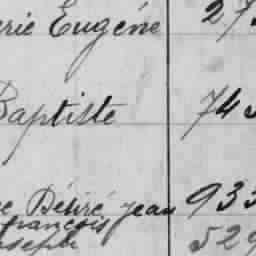 Eugéne 27
Baptiste 74
Désiré Jean 933
françois
Joseph 529